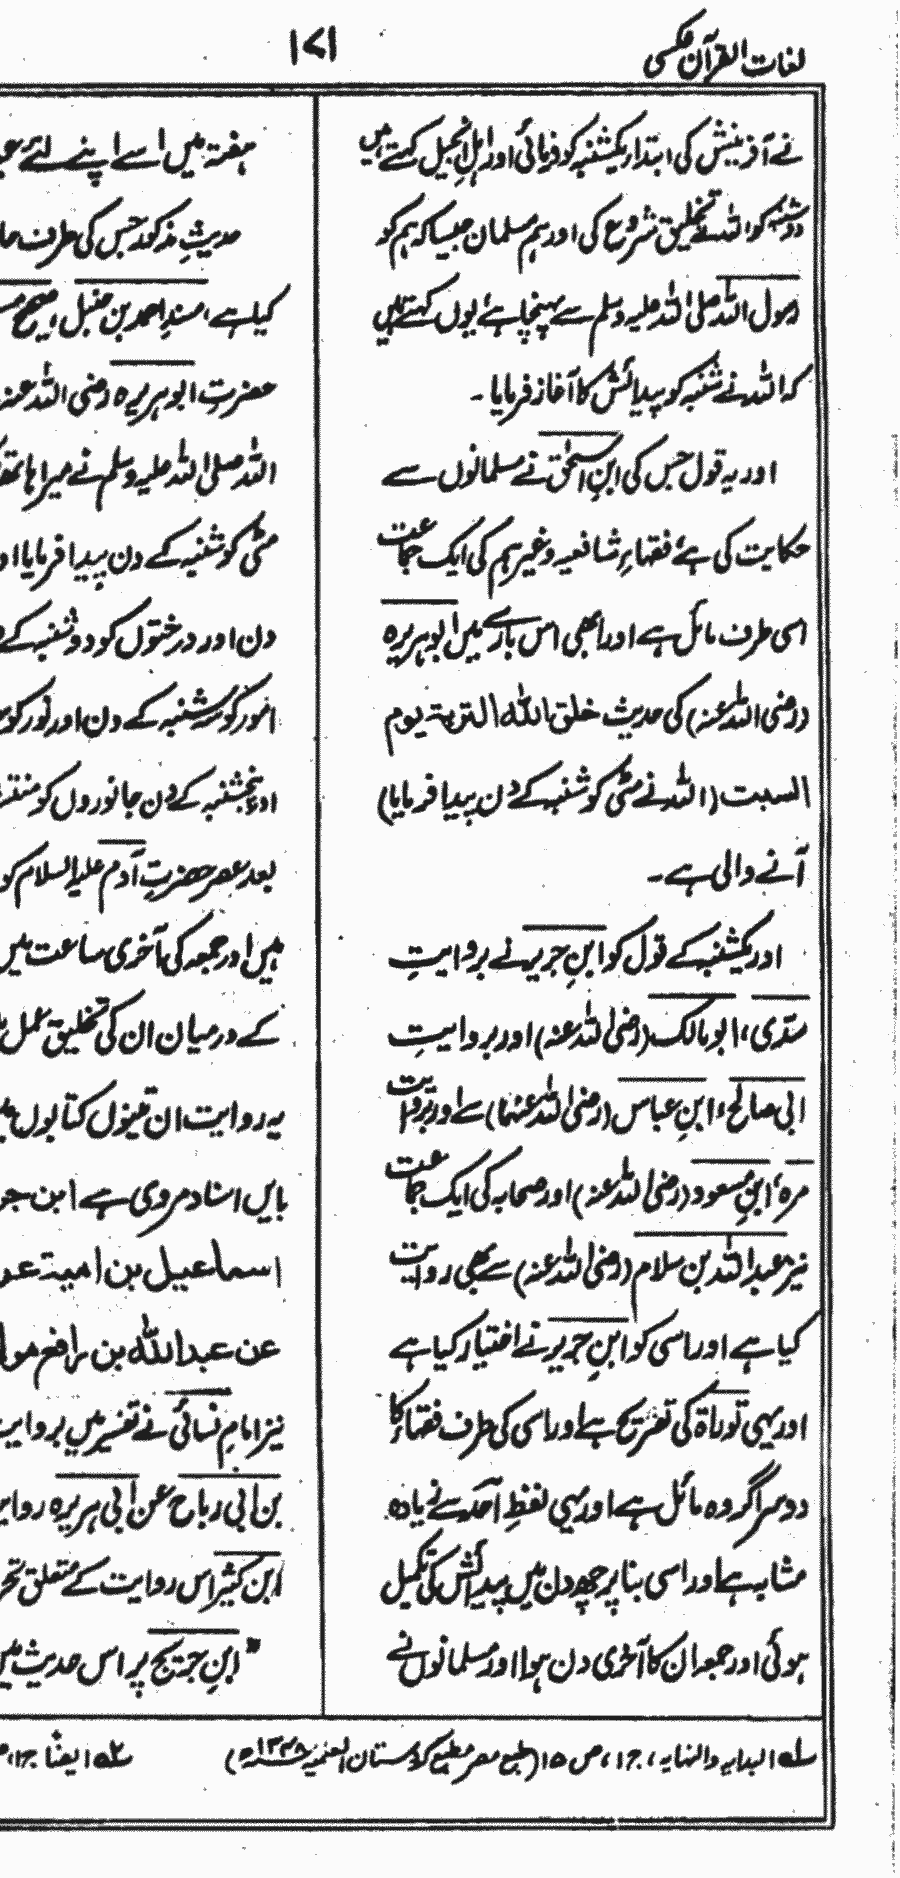 لغات القرآن عکسی
۱۷۱
نے آفرینش کی ابتداء یکشنبہ کو فرمائی اور اہلِ انجیل کہتے ہیں
دوشنبہ کو اللہ نے تخلیق شروع کی اور ہم مسلمان جیسا کہ ہم کو
رسول اللہ صلی اللہ علیہ وسلم سے پہنچا ہے یوں کہتے ہیں
کہ اللہ نے شنبہ کو پیدائش کا آغاز فرمایا ۔
اور یہ قول جس کی ابنِ اسحٰق نے مسلمانوں سے
حکایت کی ہے فقہاءِ شافعیہ وغیرہم کی ایک جماعت
اسی طرف مائل ہے اور ابھی اس بارے میں ابوہریرہ
(رضی اللہ عنہ) کی حدیث خلق اللہ التربۃ یوم
السبت (اللہ نے مٹی کو شنبہ کے دن پیدا فرمایا)
آنے والی ہے ۔
اور یکشنبہ کے قول کو ابنِ جریر نے بروایتِ
سدّی، ابو مالک (رضی اللہ عنہ) اور بروایتِ
ابی صالح، ابنِ عباس (رضی اللہ عنہا) سے اور بروایت
مرہ، ابنِ مسعود (رضی اللہ عنہ) اور صحابہ کی ایک جماعت
نیز عبداللہ بن سلام (رضی اللہ عنہ) سے بھی روایت
کیا ہے اور اسی کو ابنِ جریر نے اختیار کیا ہے
اور یہی توراۃ کی تصریح ہے اور اسی کی طرف فقہاء کا
دوسرا گروہ مائل ہے اور یہی لفظِ اَحد سے زیادہ
مشابہ ہے اور اسی بنا پر چھ دن میں پیدائش کی تکمیل
ہوئی اور جمعہ ان کا آخری دن ہوا اور مسلمانوں نے
ہفتہ میں اسے اپنے لئے
حدیثِ مذکور جس کی طرف
کیا ہے، مسندِ احمد بن حنبل، صحیح
حضرتِ ابوہریرہ رضی اللہ عنہ
اللہ صلی اللہ علیہ وسلم نے میرا ہاتھ
مٹی کو شنبہ کے دن پیدا فرمایا
دن اور درختوں کو دوشنبہ کے
امور کو سہ شنبہ کے دن اور نور کو
اور پنجشنبہ کے دن جانوروں کو
بعد عصر حضرتِ آدم علیہ السلام کو
میں اور جمعہ کی آخری ساعت میں
کے درمیان ان کی تخلیق عمل
یہ روایت ان تینوں کتابوں
بایں اسناد مروی ہے ابن
اسماعیل بن امیۃ
عن عبداللہ بن رافع
نیز امامِ نسائی نے تفسیر میں
بن ابی رباح عن ابی ہریرہ
ابن کثیر اس روایت کے متعلق
"ابنِ جریج پر اس حدیث میں
لہ البدایہ والنہایہ، ج۱، ص ۱۵ (طبع مصر مطبع کردستان العلمیہ ۱۳۴۸ھ)
لہ ایضًا ج۱،